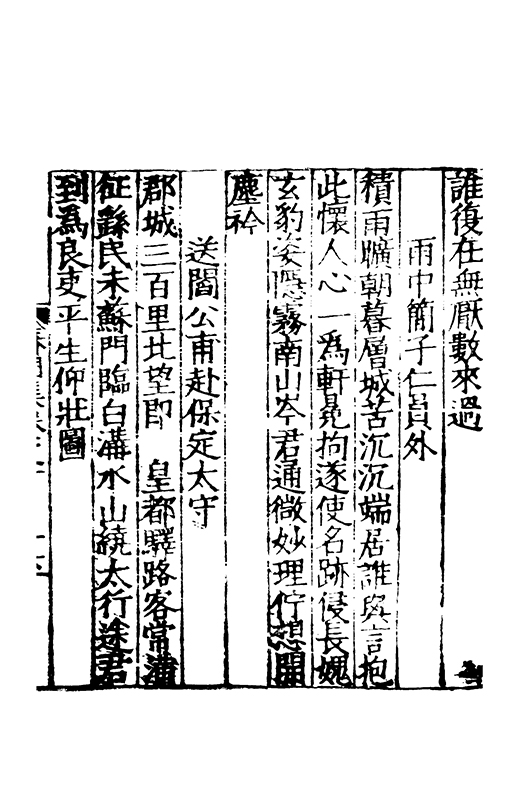 誰復在無厭數來過
雨中簡子仁員外
積雨曠朝暮層城苦沉沉端居誰與言抱
此懷人心一爲軒冕拘遂使名跡侵長媿
玄豹姿隱霧南山岑君通微妙理佇想開
塵衿
送閻公甫赴保定太守
郡城三百里北望即　皇都驛路客常滿
征繇民未蘇門臨白溝水山繞太行途君
到爲良吏平生仰壯圖